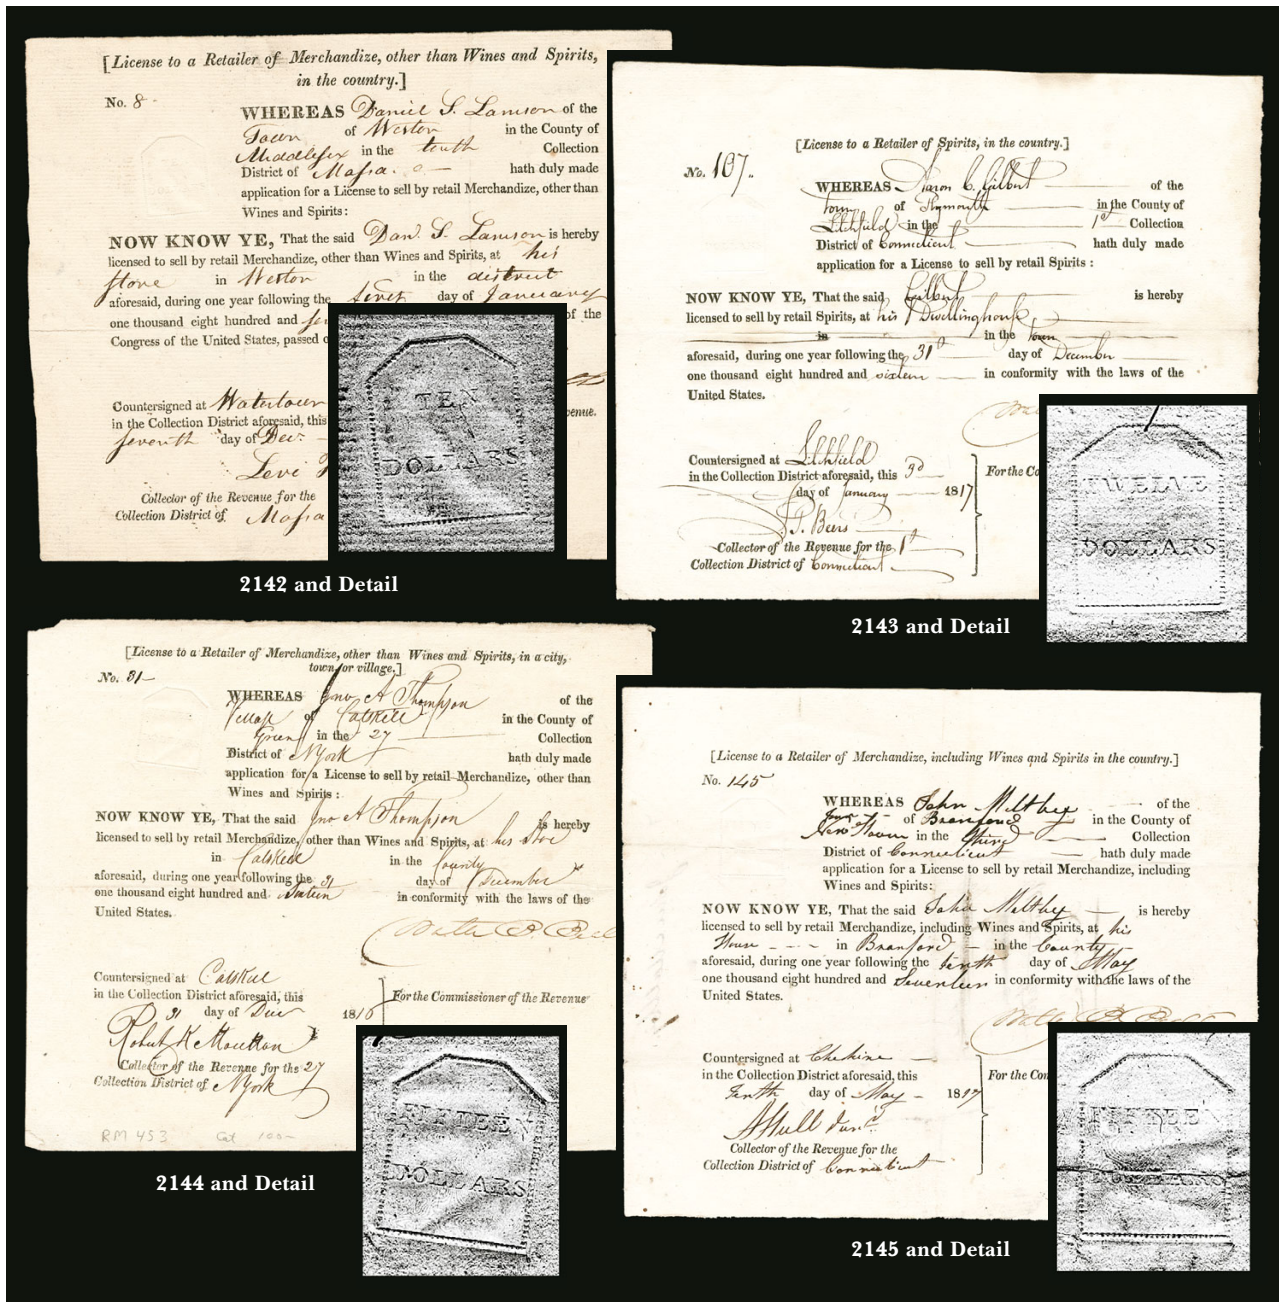 [License to a Retailer of Merchandize, other than Wines and Spirits,
in the country.]
No. 8
WHEREAS Daniel S. Lamson of the
Town of Weston in the County of
Middlesex in the tenth Collection
District of Massa. hath duly made
application for a License to sell by retail Merchandize, other than
Wines and Spirits:
NOW KNOW YE, That the said Dan. S. Lamson is hereby
licensed to sell by retail Merchandize, other than Wines and Spirits, at his
store in Weston in the district
aforesaid, during one year following the first day of January
one thousand eight hundred and of the
Congress of the United States, passed
Countersigned at Watertown
in the Collection District aforesaid, this
seventh day of Dec.
Levi
Collector of the Revenue for the
Collection District of Massa
TEN
DOLLARS
2142 and Detail
[License to a Retailer of Spirits, in the country.]
No. 107
WHEREAS Aaron C. Gilbert of the
Town of Plymouth in the County of
Litchfield in the 1st Collection
District of Connecticut hath duly made
application for a License to sell by retail Spirits:
NOW KNOW YE, That the said Gilbert is hereby
licensed to sell by retail Spirits, at his Dwellinghouse
in in the Town
aforesaid, during one year following the 31st day of December
one thousand eight hundred and sixteen in conformity with the laws of the
United States.
Countersigned at Litchfield
in the Collection District aforesaid, this 3d
day of January 1817
For the Co
Beers
Collector of the Revenue for the 1st
Collection District of Connecticut
TWELVE
DOLLARS
2143 and Detail
[License to a Retailer of Merchandize, other than Wines and Spirits, in a city,
town, or village.]
No. 31
WHEREAS Jno A Thompson of the
of Catskill in the County of
Green in the 27 Collection
District of NYork hath duly made
application for a License to sell by retail Merchandize, other than
Wines and Spirits:
NOW KNOW YE, That the said Jno A Thompson is hereby
licensed to sell by retail Merchandize, other than Wines and Spirits, at his Store
in Catskill in the County
aforesaid, during one year following the 31 day of December
one thousand eight hundred and Sixteen in conformity with the laws of the
United States.
Countersigned at Catskill
in the Collection District aforesaid, this
31 day of Decr 1816
For the Commissioner of the Revenue
Robert K Moulton
Collector of the Revenue for the 27
Collection District of NYork
RM 453 Cat 100-
FIFTEEN
DOLLARS
2144 and Detail
[License to a Retailer of Merchandize, including Wines and Spirits in the country.]
No. 145
WHEREAS John Maltby of the
Town of Branford in the County of
New Haven in the third Collection
District of Connecticut hath duly made
application for a License to sell by retail Merchandize, including
Wines and Spirits:
NOW KNOW YE, That the said John Maltby is hereby
licensed to sell by retail Merchandize, including Wines and Spirits, at his
House in Branford in the County
aforesaid, during one year following the tenth day of May
one thousand eight hundred and Seventeen in conformity with the laws of the
United States.
Countersigned at Cheshire
in the Collection District aforesaid, this
tenth day of May 1817
For the Com
A Hull Junr
Collector of the Revenue for the
Collection District of Connecticut
FIFTEEN
DOLLARS
2145 and Detail